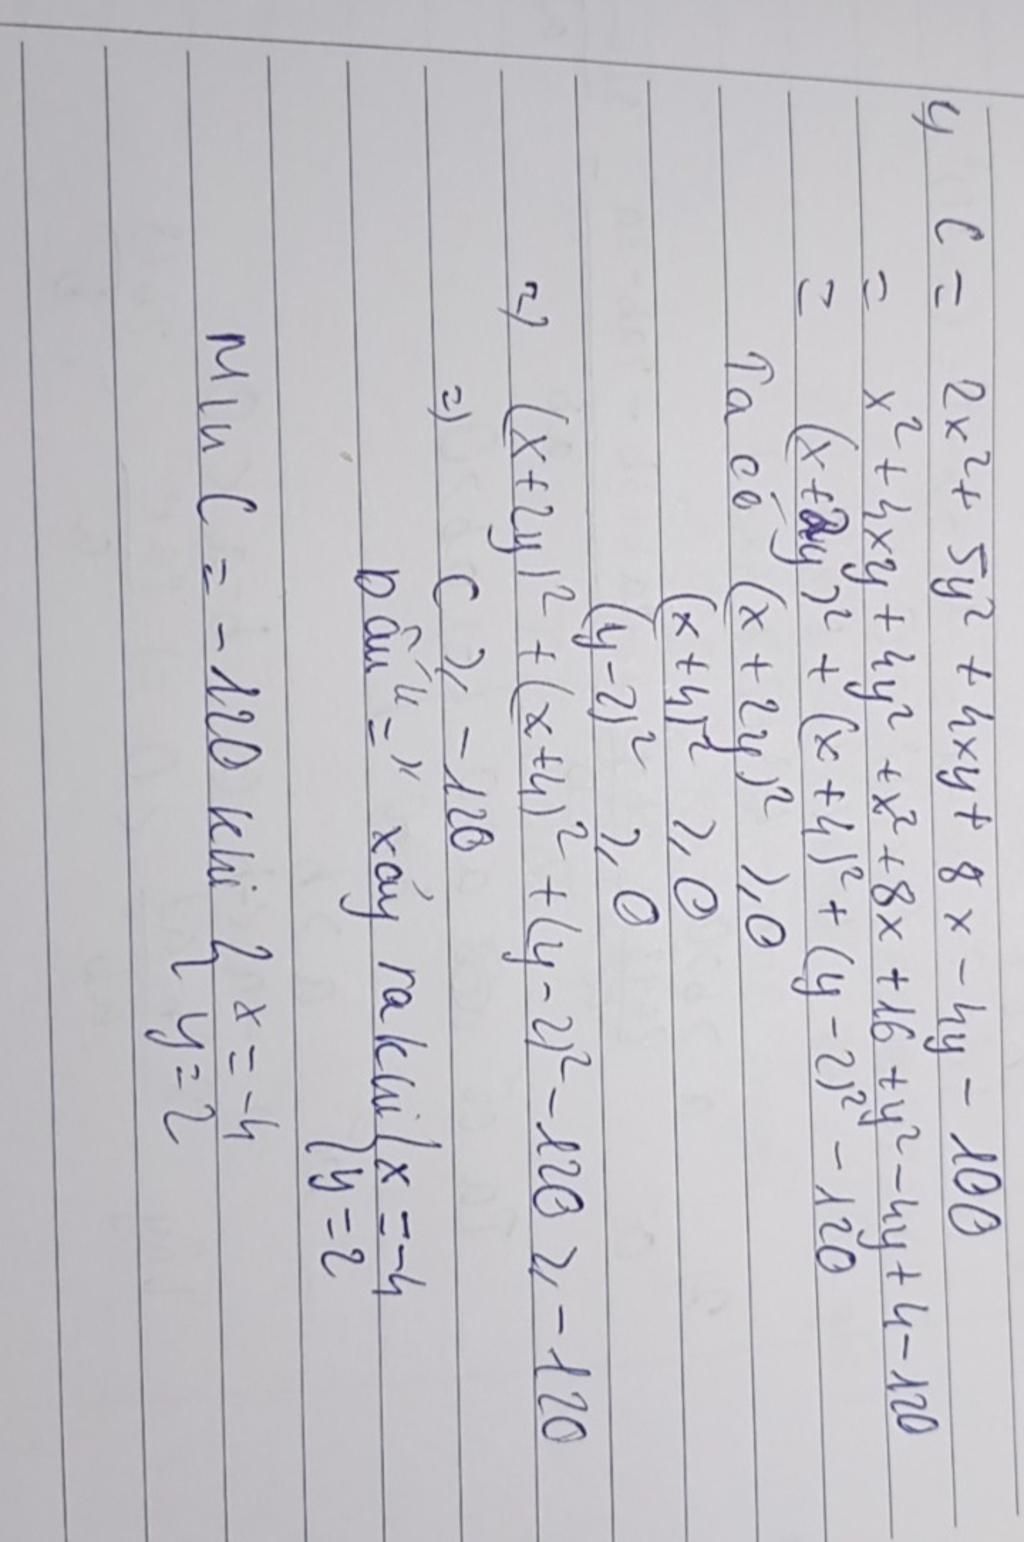 4 C = 2x² + 5y² + 4xy + 8x - 4y - 100
= x² + 4xy + 4y² + x² + 8x + 16 + y² - 4y + 4 - 120
= (x+2y)² + (x+4)² + (y-2)² - 120
Ta có (x+2y)² ≥ 0
(x+4)² ≥ 0
(y-2)² ≥ 0
=) (x+2y)² + (x+4)² + (y-2)² - 120 ≥ -120
=) C ≥ -120
Dấu "=" xảy ra khi { x = -4
y = 2
Min C = -120 khi { x = -4
y = 2